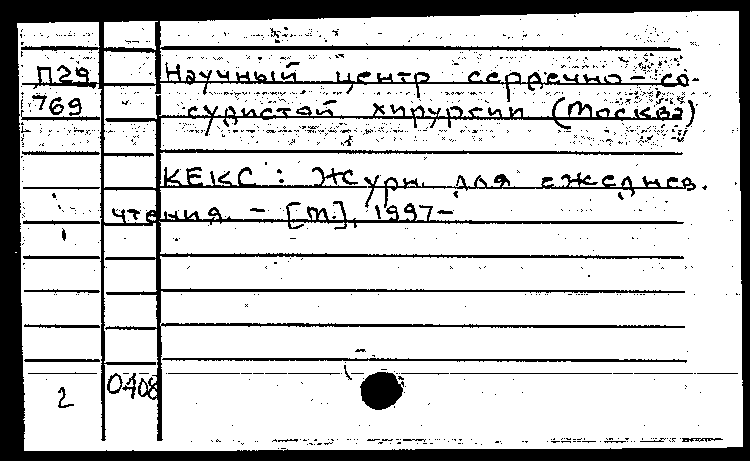 П29
769
Научный центр сердечно-со-
судистой хирургии (Москва)
КЕКС : Журн. для ежеднев.
чтения. - [М.], 1997-
2 0408